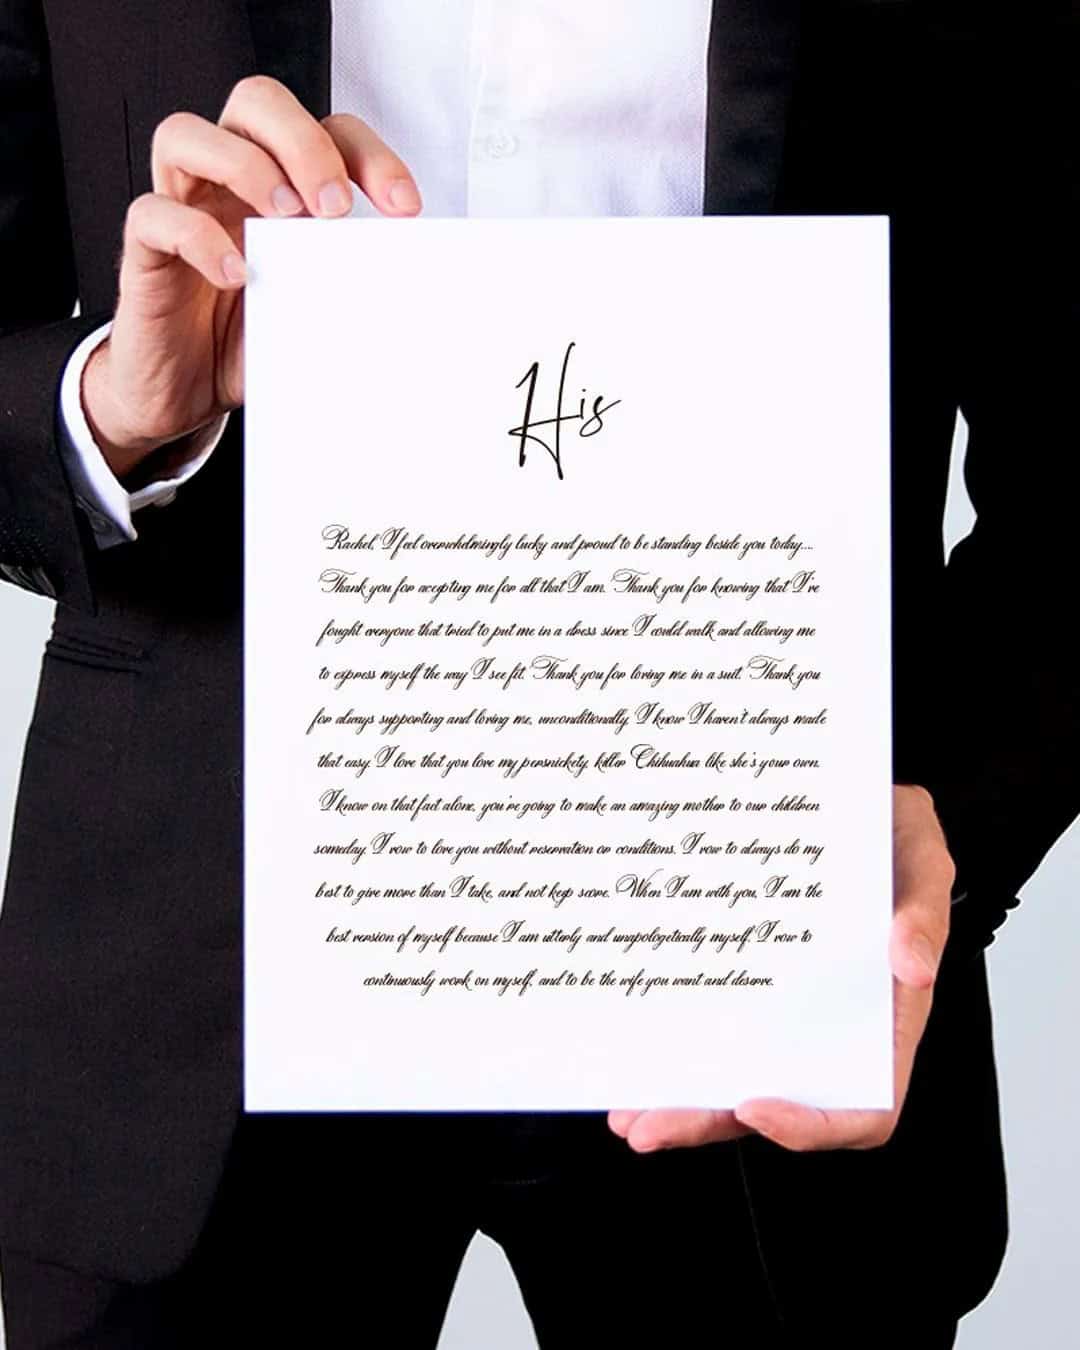 His
Rachel, I feel overwhelmingly lucky and proud to be standing beside you today....
Thank you for accepting me for all that I am. Thank you for knowing that I've
fought everyone that tried to put me in a dress since I could walk and allowing me
to express myself the way I see fit. Thank you for loving me in a suit. Thank you
for always supporting and loving me, unconditionally. I know I haven't always made
that easy. I love that you love my persnickety, killer Chihuahua like she's your own.
I know on that fact alone, you're going to make an amazing mother to our children
someday. I vow to love you without reservation or conditions. I vow to always do my
best to give more than I take, and not keep score. When I am with you, I am the
best version of myself because I am utterly and unapologetically myself. I vow to
continuously work on myself, and to be the wife you want and deserve.